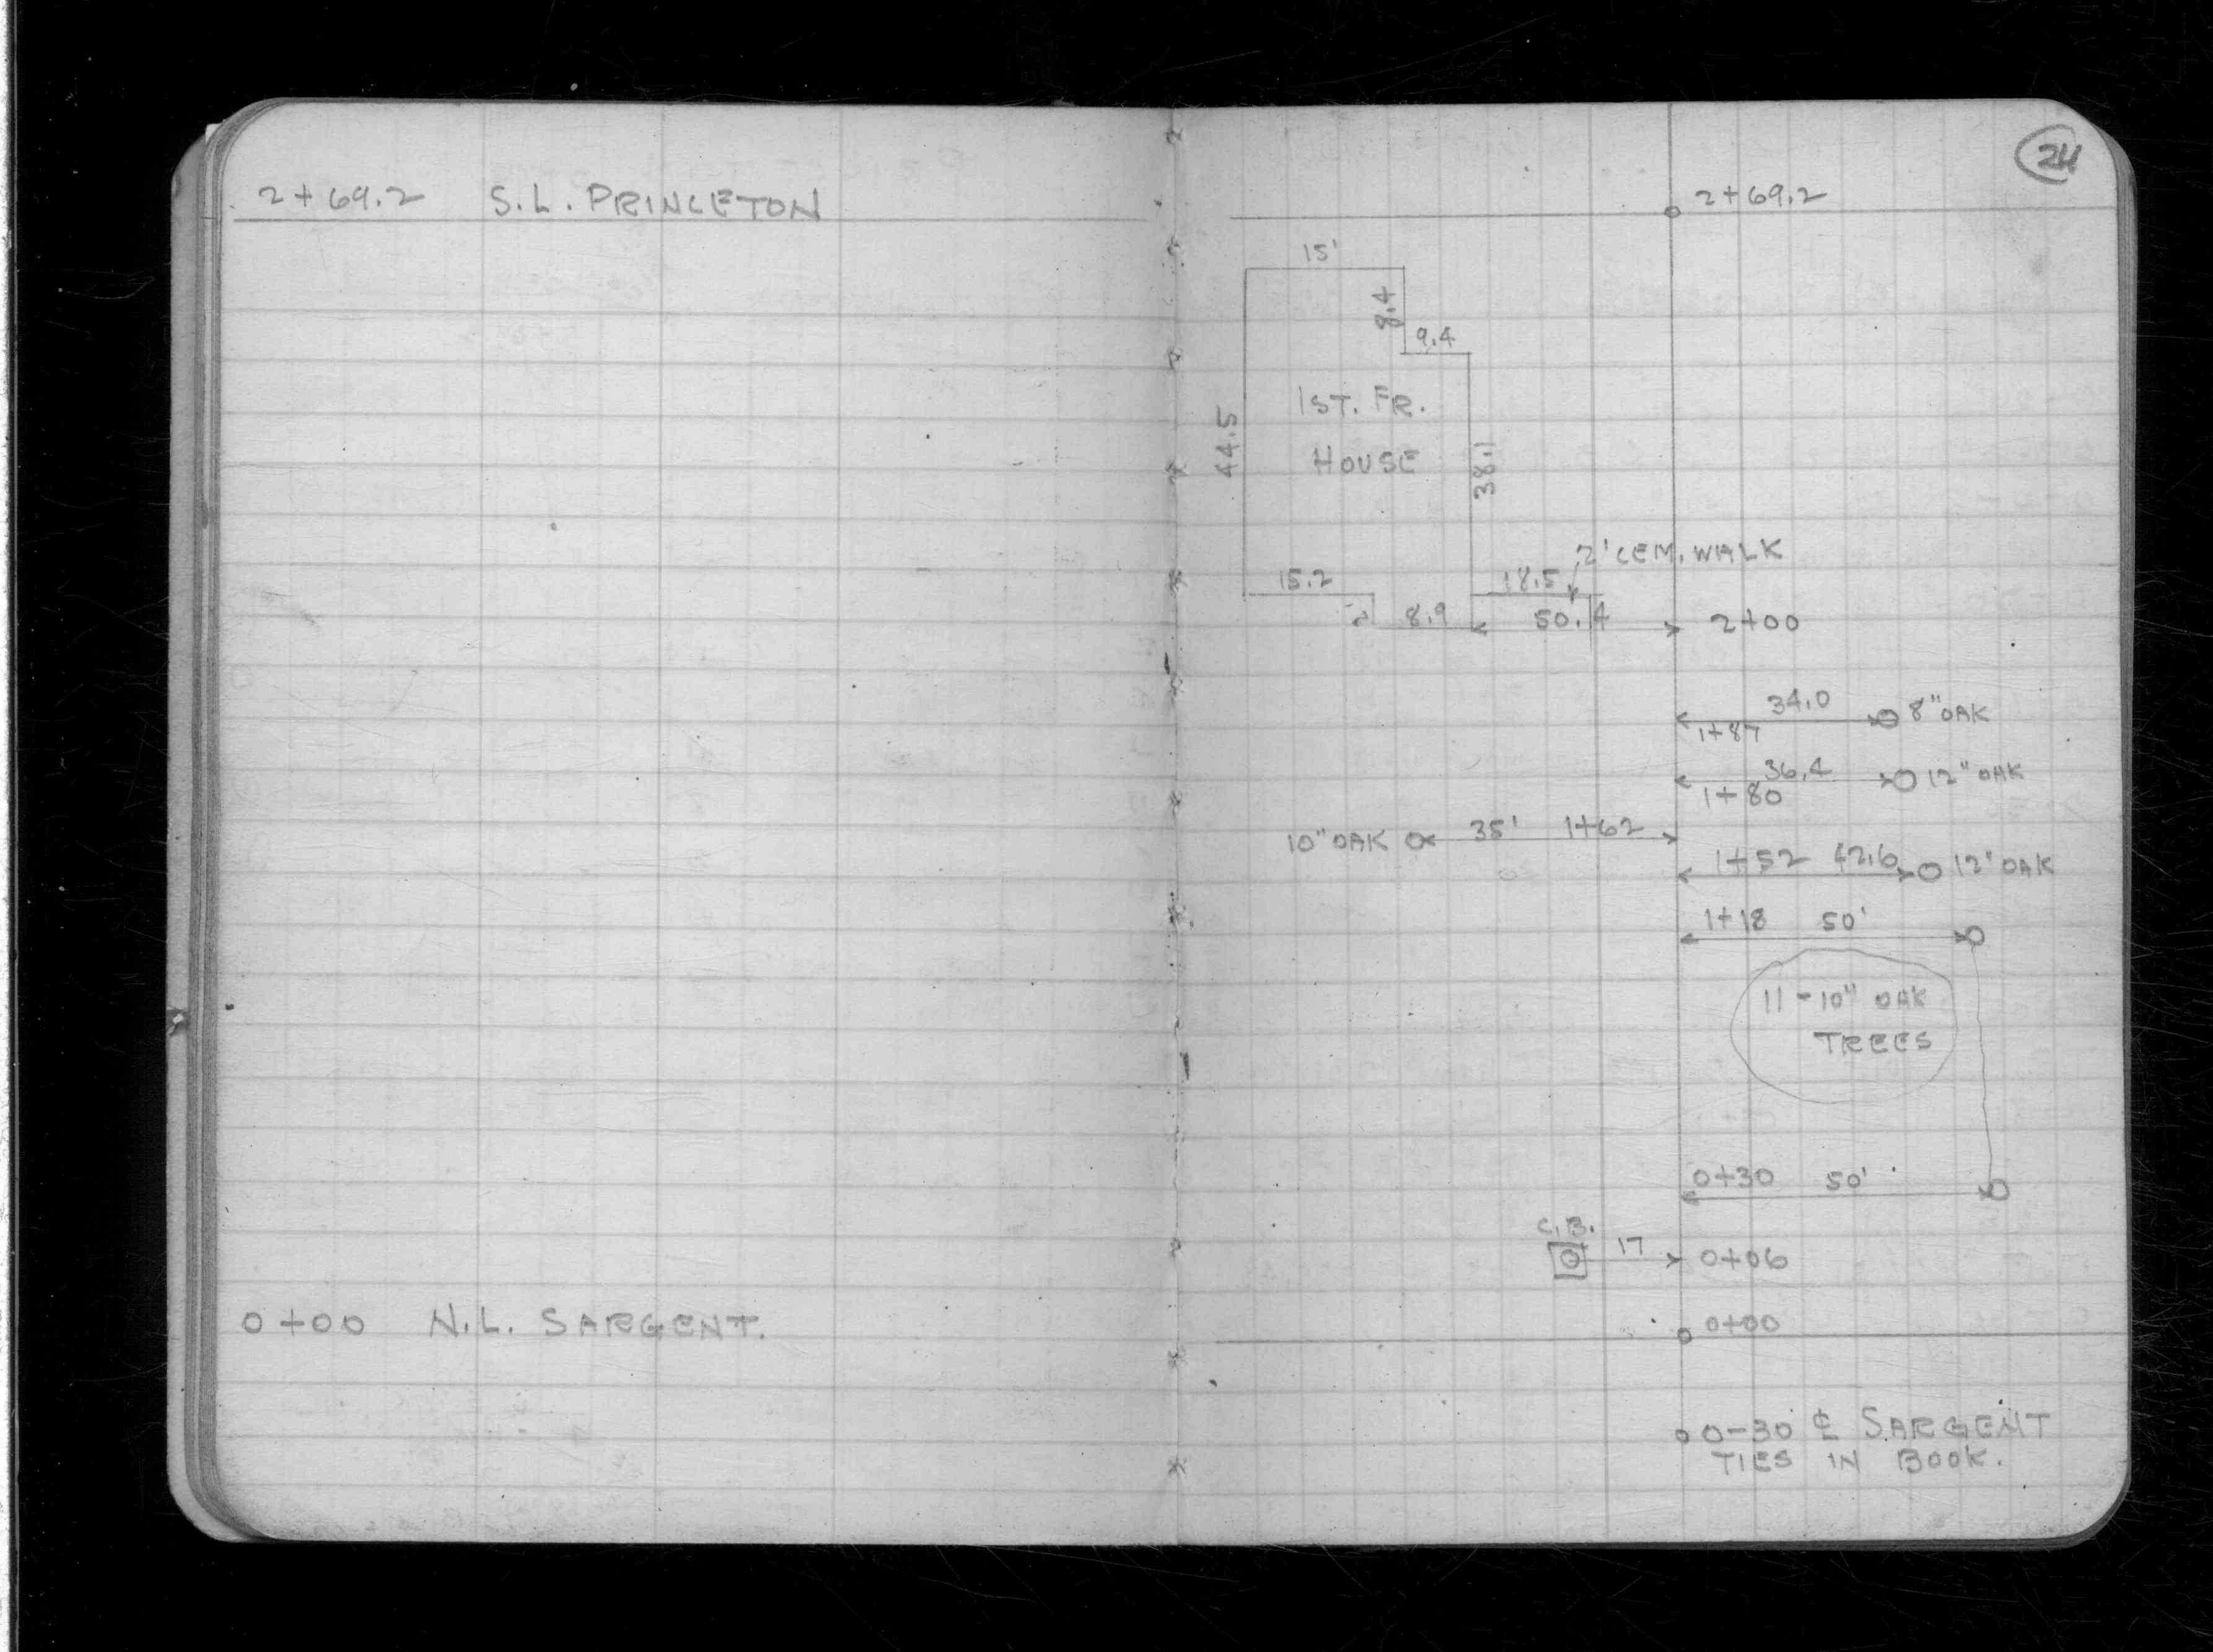 2+69.2 S.L. PRINCETON
0+00 N.L. SARGENT.
24
2+69.2
15'
8.4
9.4
1ST. FR.
HOUSE
44.5
38.1
2' CEM. WALK
15.2
18.5
2
8.9
50.4
2+00
34.0
8" OAK
1+87
36.4
12" OAK
1+80
10" OAK 35' 1+62
1+52 42.6 12" OAK
1+18 50'
11-10" OAK
TREES
0+30 50'
C.B.
17
0+06
0+00
0-30 ℄ SARGENT
TIES IN BOOK.